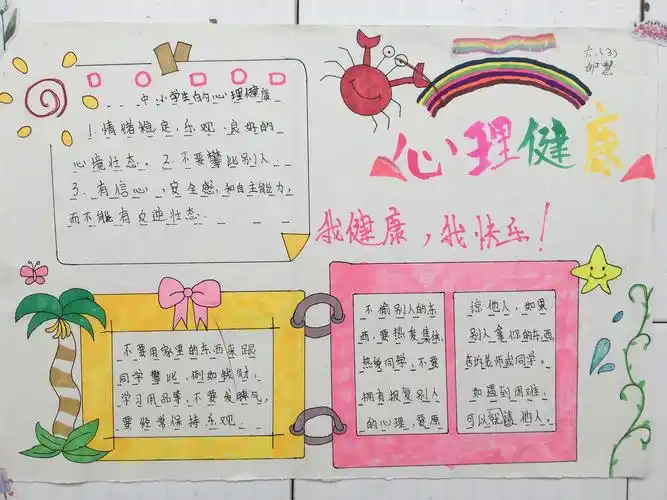 六.(3)
心理健康
我健康，我快乐！
中小学生的心理健康
1.情绪稳定，乐观，良好的
心境状态。2.不要攀比别人.
3.有信心，安全感，和自主能力，
而不能有叉逆状态.
不要用家里的东西来跟
同学攀比，例如钱财，
学习用品等，不要发脾气，
要经常保持乐观
不偷别人的东
西，要热爱集体，
热爱同学，不要
拥有报复别人
的心理，要原
谅他人，如果
别人拿你的东西，
告诉老师或同学。
如遇到困难，
可以就請他人。